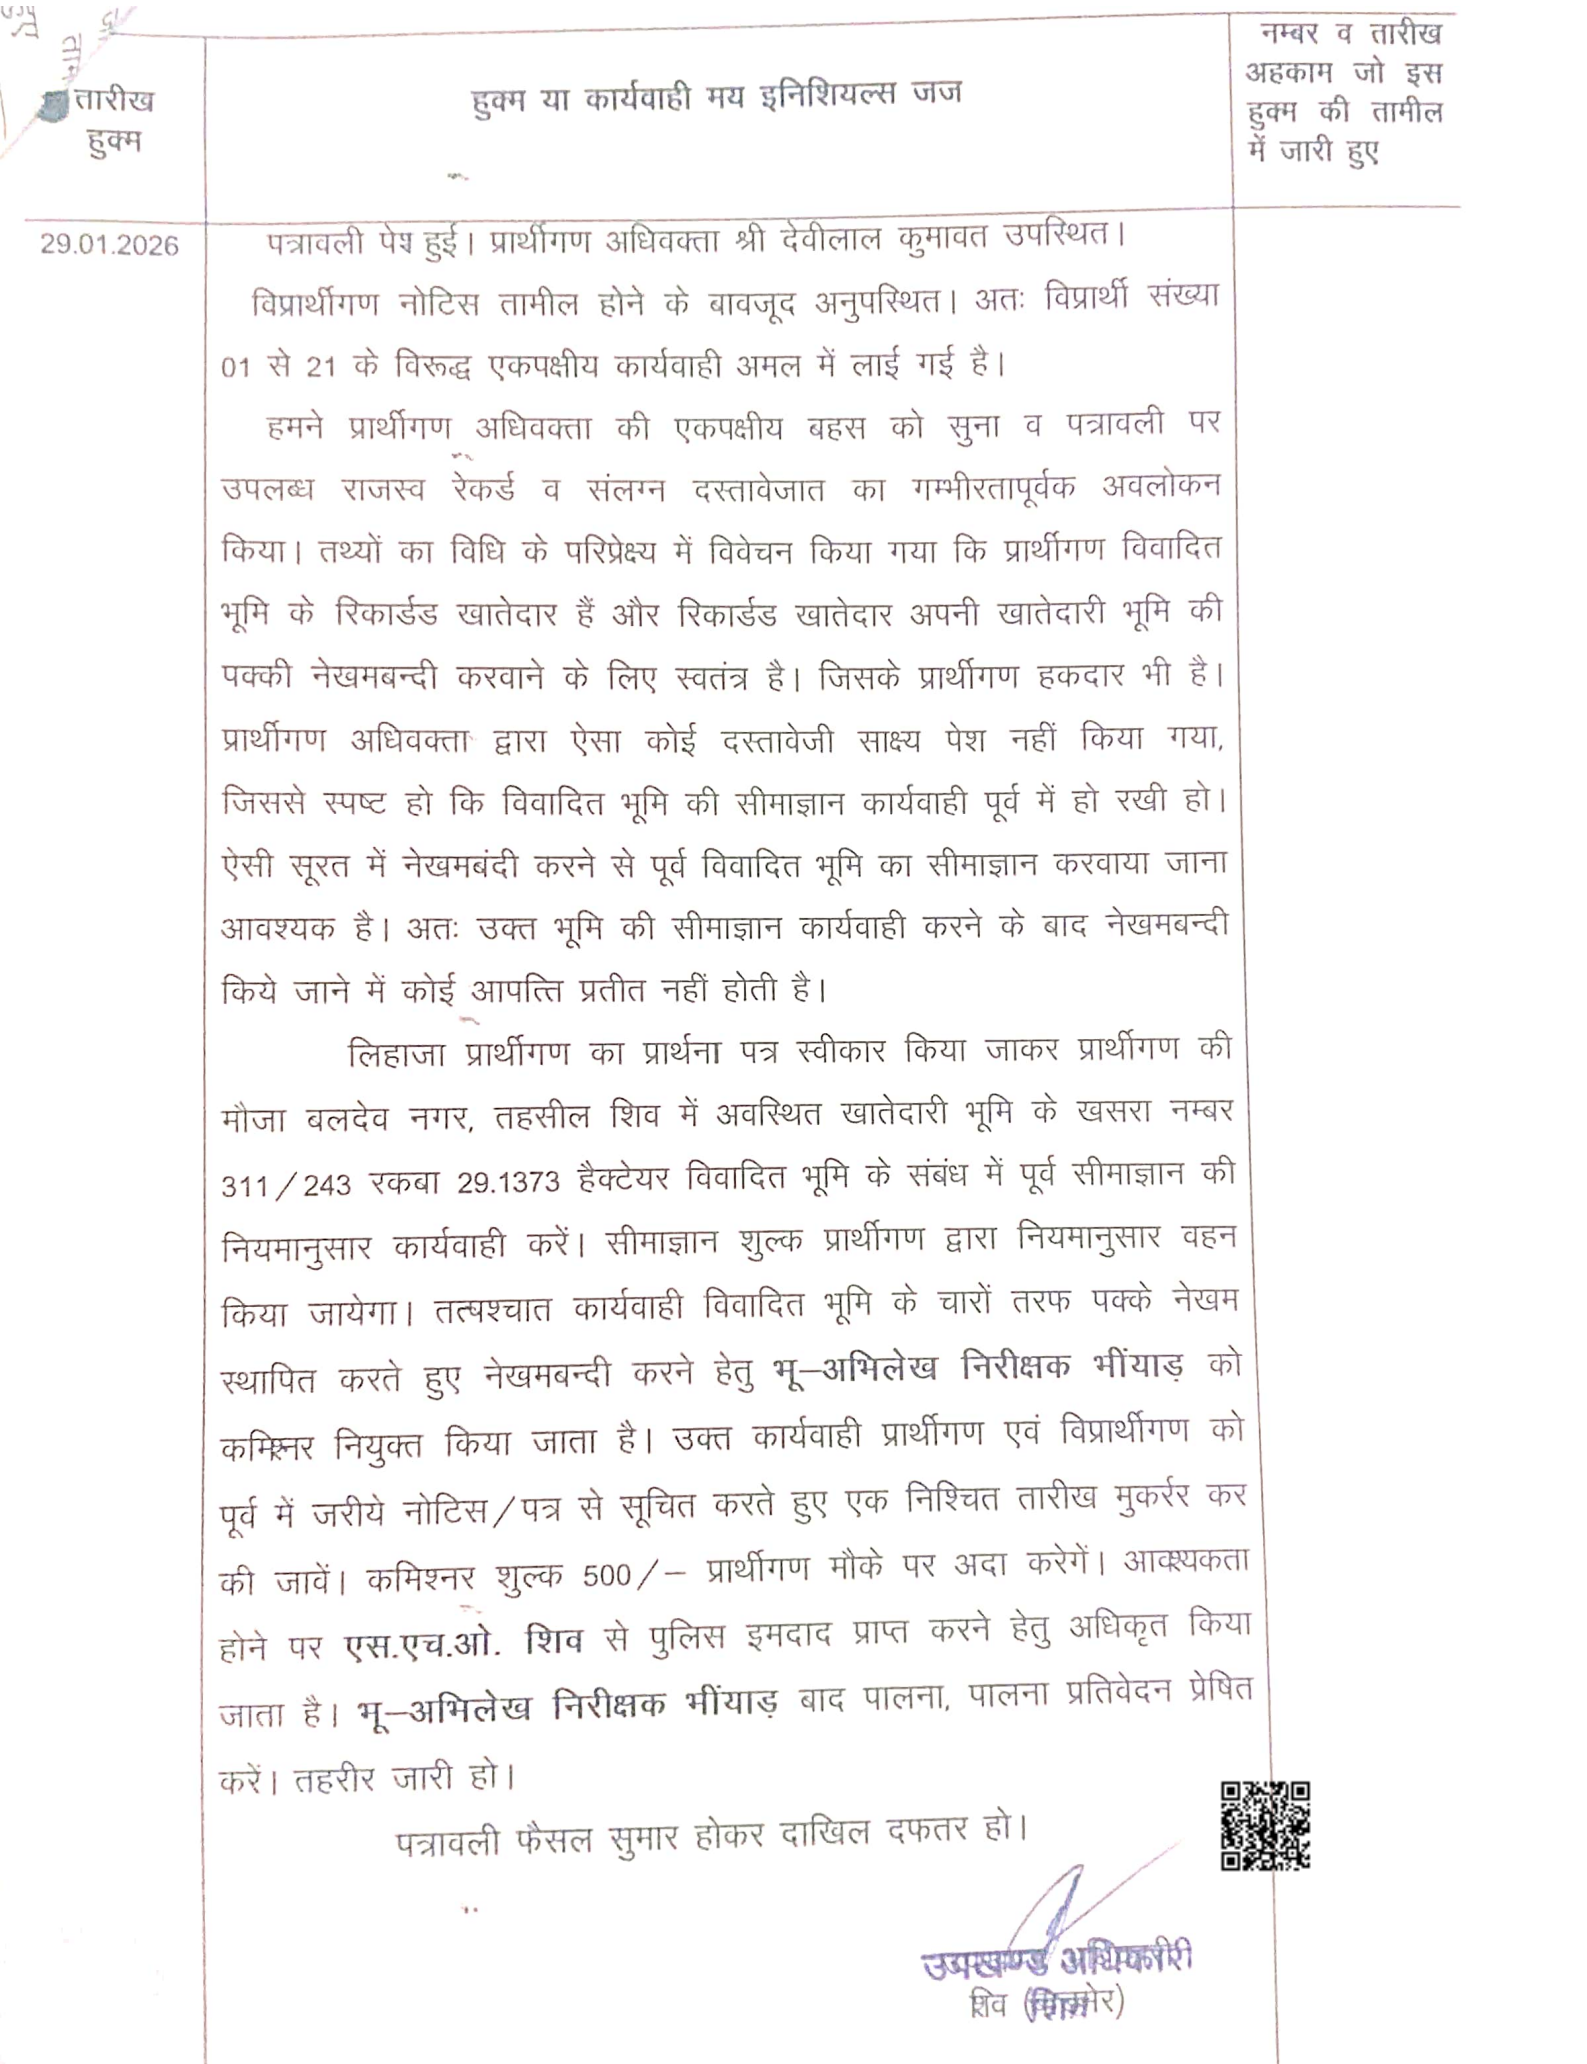 तारीख
हुक्म
हुक्म या कार्यवाही मय इनिशियल्स जज
नम्बर व तारीख
अहकाम जो इस
हुक्म की तामील
में जारी हुए
29.01.2026
पत्रावली पेश हुई। प्रार्थीगण अधिवक्ता श्री देवीलाल कुमावत उपस्थित।
विप्रार्थीगण नोटिस तामील होने के बावजूद अनुपस्थित। अतः विप्रार्थी संख्या
01 से 21 के विरूद्ध एकपक्षीय कार्यवाही अमल में लाई गई है।
हमने प्रार्थीगण अधिवक्ता की एकपक्षीय बहस को सुना व पत्रावली पर
उपलब्ध राजस्व रेकर्ड व संलग्न दस्तावेजात का गम्भीरतापूर्वक अवलोकन
किया। तथ्यों का विधि के परिप्रेक्ष्य में विवेचन किया गया कि प्रार्थीगण विवादित
भूमि के रिकार्डड खातेदार हैं और रिकार्डड खातेदार अपनी खातेदारी भूमि की
पक्की नेखमबन्दी करवाने के लिए स्वतंत्र है। जिसके प्रार्थीगण हकदार भी है।
प्रार्थीगण अधिवक्ता द्वारा ऐसा कोई दस्तावेजी साक्ष्य पेश नहीं किया गया,
जिससे स्पष्ट हो कि विवादित भूमि की सीमाज्ञान कार्यवाही पूर्व में हो रखी हो।
ऐसी सूरत में नेखमबंदी करने से पूर्व विवादित भूमि का सीमाज्ञान करवाया जाना
आवश्यक है। अतः उक्त भूमि की सीमाज्ञान कार्यवाही करने के बाद नेखमबन्दी
किये जाने में कोई आपत्ति प्रतीत नहीं होती है।
लिहाजा प्रार्थीगण का प्रार्थना पत्र स्वीकार किया जाकर प्रार्थीगण की
मौजा बलदेव नगर, तहसील शिव में अवस्थित खातेदारी भूमि के खसरा नम्बर
311/243 रकबा 29.1373 हैक्टेयर विवादित भूमि के संबंध में पूर्व सीमाज्ञान की
नियमानुसार कार्यवाही करें। सीमाज्ञान शुल्क प्रार्थीगण द्वारा नियमानुसार वहन
किया जायेगा। तत्पश्चात कार्यवाही विवादित भूमि के चारों तरफ पक्के नेखम
स्थापित करते हुए नेखमबन्दी करने हेतु भू–अभिलेख निरीक्षक भींयाड़ को
कमिश्नर नियुक्त किया जाता है। उक्त कार्यवाही प्रार्थीगण एवं विप्रार्थीगण को
पूर्व में जरीये नोटिस/पत्र से सूचित करते हुए एक निश्चित तारीख मुकर्रर कर
की जावें। कमिश्नर शुल्क 500/– प्रार्थीगण मौके पर अदा करेगें। आवश्यकता
होने पर एस.एच.ओ. शिव से पुलिस इमदाद प्राप्त करने हेतु अधिकृत किया
जाता है। भू–अभिलेख निरीक्षक भींयाड़ बाद पालना, पालना प्रतिवेदन प्रेषित
करें। तहरीर जारी हो।
पत्रावली फैसल सुमार होकर दाखिल दफतर हो।
उपखण्ड अधिकारी
शिव